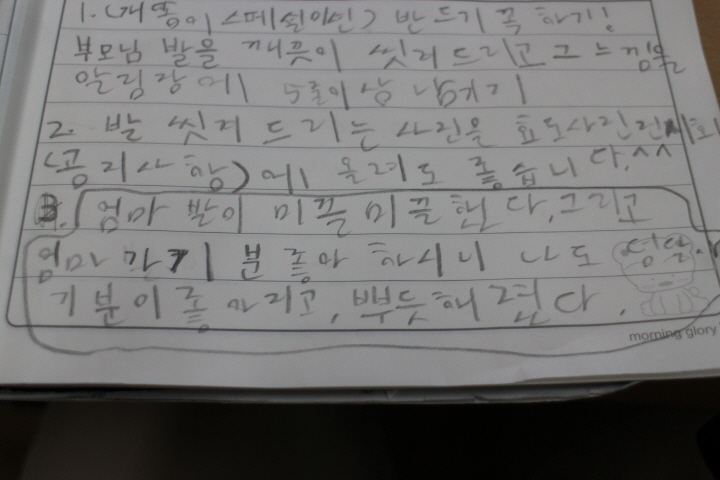 1. (개똥이 스페셜미션) 반드기 꼭 하기!
부모님 발을 깨끗이 씻려 드리고 그 느낌을
알림장에 5줄이상 남기기
2. 발 씻겨 드리는 사진을 효도사진전시회
(공지사항)에 올려도 좋습니다.^^
엄마 발이 미끌미끌 한다. 그리고
엄마가 기분 좋아 하시니 나도
기분이 좋아지고, 뿌듯해졌다.
morning glory